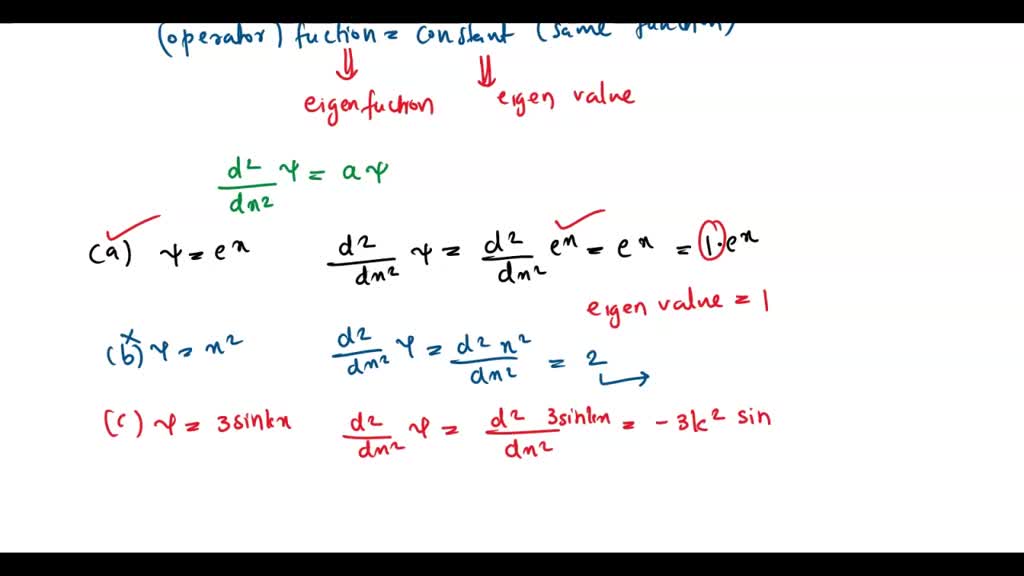 (operator) fuction = constant (same function)
⇓ ⇓
eigenfuction eigen value
d²/dx² ψ = a ψ
(a) ψ = eˣ d²/dx² ψ = d²/dx² eˣ = eˣ = 1·eˣ
eigen value = 1
(b) ψ = x² d²/dx² ψ = d² x²/dx² = 2
(c) ψ = 3sinkx d²/dx² ψ = d² 3sinkx/dx² = -3k² sin